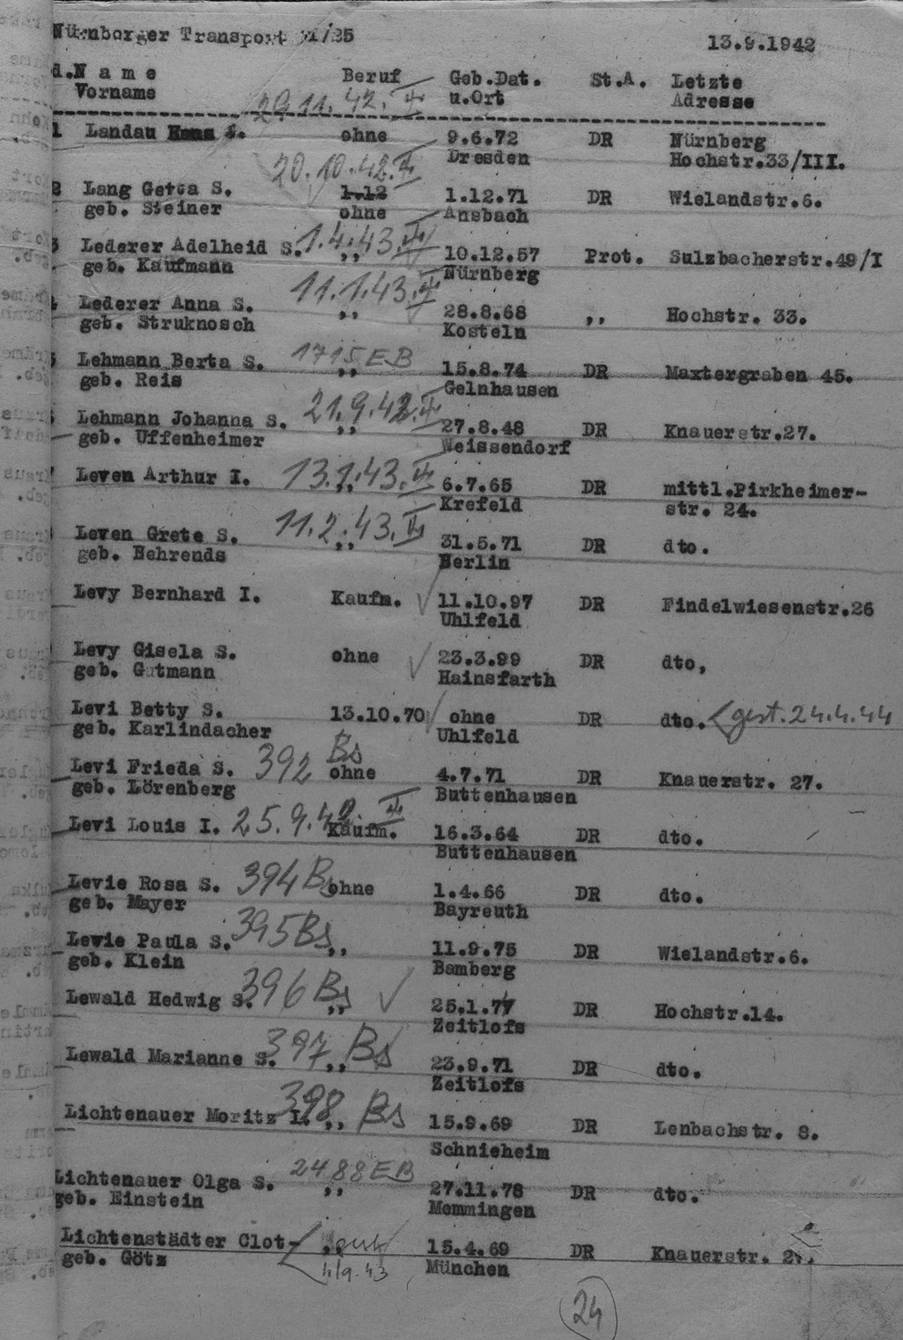 Nürnberger Transport II/25 13.9.1942
d. N a m e Beruf Geb.Dat. St.A. Letzte
Vorname u.Ort Adresse
29.11.42.
1 Landau S. ohne 9.6.72 DR Nürnberg
Dresden Hochstr.33/III.
20.10.42.
2 Lang Getta S. 1.12 1.12.71 DR Wielandstr.6.
geb. Steiner ohne Ansbach
3 Lederer Adelheid S. 1.4.43. ,, 10.12.57 Prot. Sulzbacherstr.49/I
geb. Kaufmann Nürnberg
11.1.43.
Lederer Anna S. ,, 28.8.68 ,, Hochstr. 33.
geb. Struknosch Kosteln
Lehmann Berta S. 1715 EB ,, 15.8.74 DR Maxtergraben 45.
geb. Reis Gelnhausen
21.9.42.
Lehmann Johanna S. ,, 27.8.48 DR Knauerstr.27.
geb. Uffenheimer Weissendorf
Leven Arthur I. 13.1.43. ,, 6.7.65 DR mittl.Pirkheimer-
Krefeld str. 24.
11.2.43.
Leven Grete S. ,, 31.5.71 DR dto.
geb. Behrends Berlin
Levy Bernhard I. Kaufm. 11.10.97 DR Findelwiesenstr.26
Uhlfeld
Levy Gisela S. ohne 23.3.99 DR dto,
geb. Gutmann Hainsfarth
Levi Betty S. 13.10.70 ohne DR dto. gest. 24.4.44
geb. Karlindacher Uhlfeld
Levi Frieda S. 392 Bs ohne 4.7.71 DR Knauerstr. 27.
geb. Lörenberg Buttenhausen
Levi Louis I. 25.9.42. Kaufm. 16.3.64 DR dto.
Buttenhausen
Levie Rosa S. 394 Bs ohne 1.4.66 DR dto.
geb. Mayer Bayreuth
Levie Paula S. 395 Bs ,, 11.9.75 DR Wielandstr.6.
geb. Klein Bamberg
Lewald Hedwig S. 396 Bs ,, 25.1.77 DR Hochstr.14.
Zeitlofs
Lewald Marianne S. 397 Bs ,, 23.9.71 DR dto.
Zeitlofs
Lichtenauer Moritz I. 398 Bs ,, 15.9.69 DR Lenbachstr. 8.
Schnieheim
Lichtenauer Olga S. 2488 EB ,, 27.11.78 DR dto.
geb. Einstein Memmingen
Lichtenstädter Clot- ,, 15.4.69 DR Knauerstr.
geb. Götz München
24